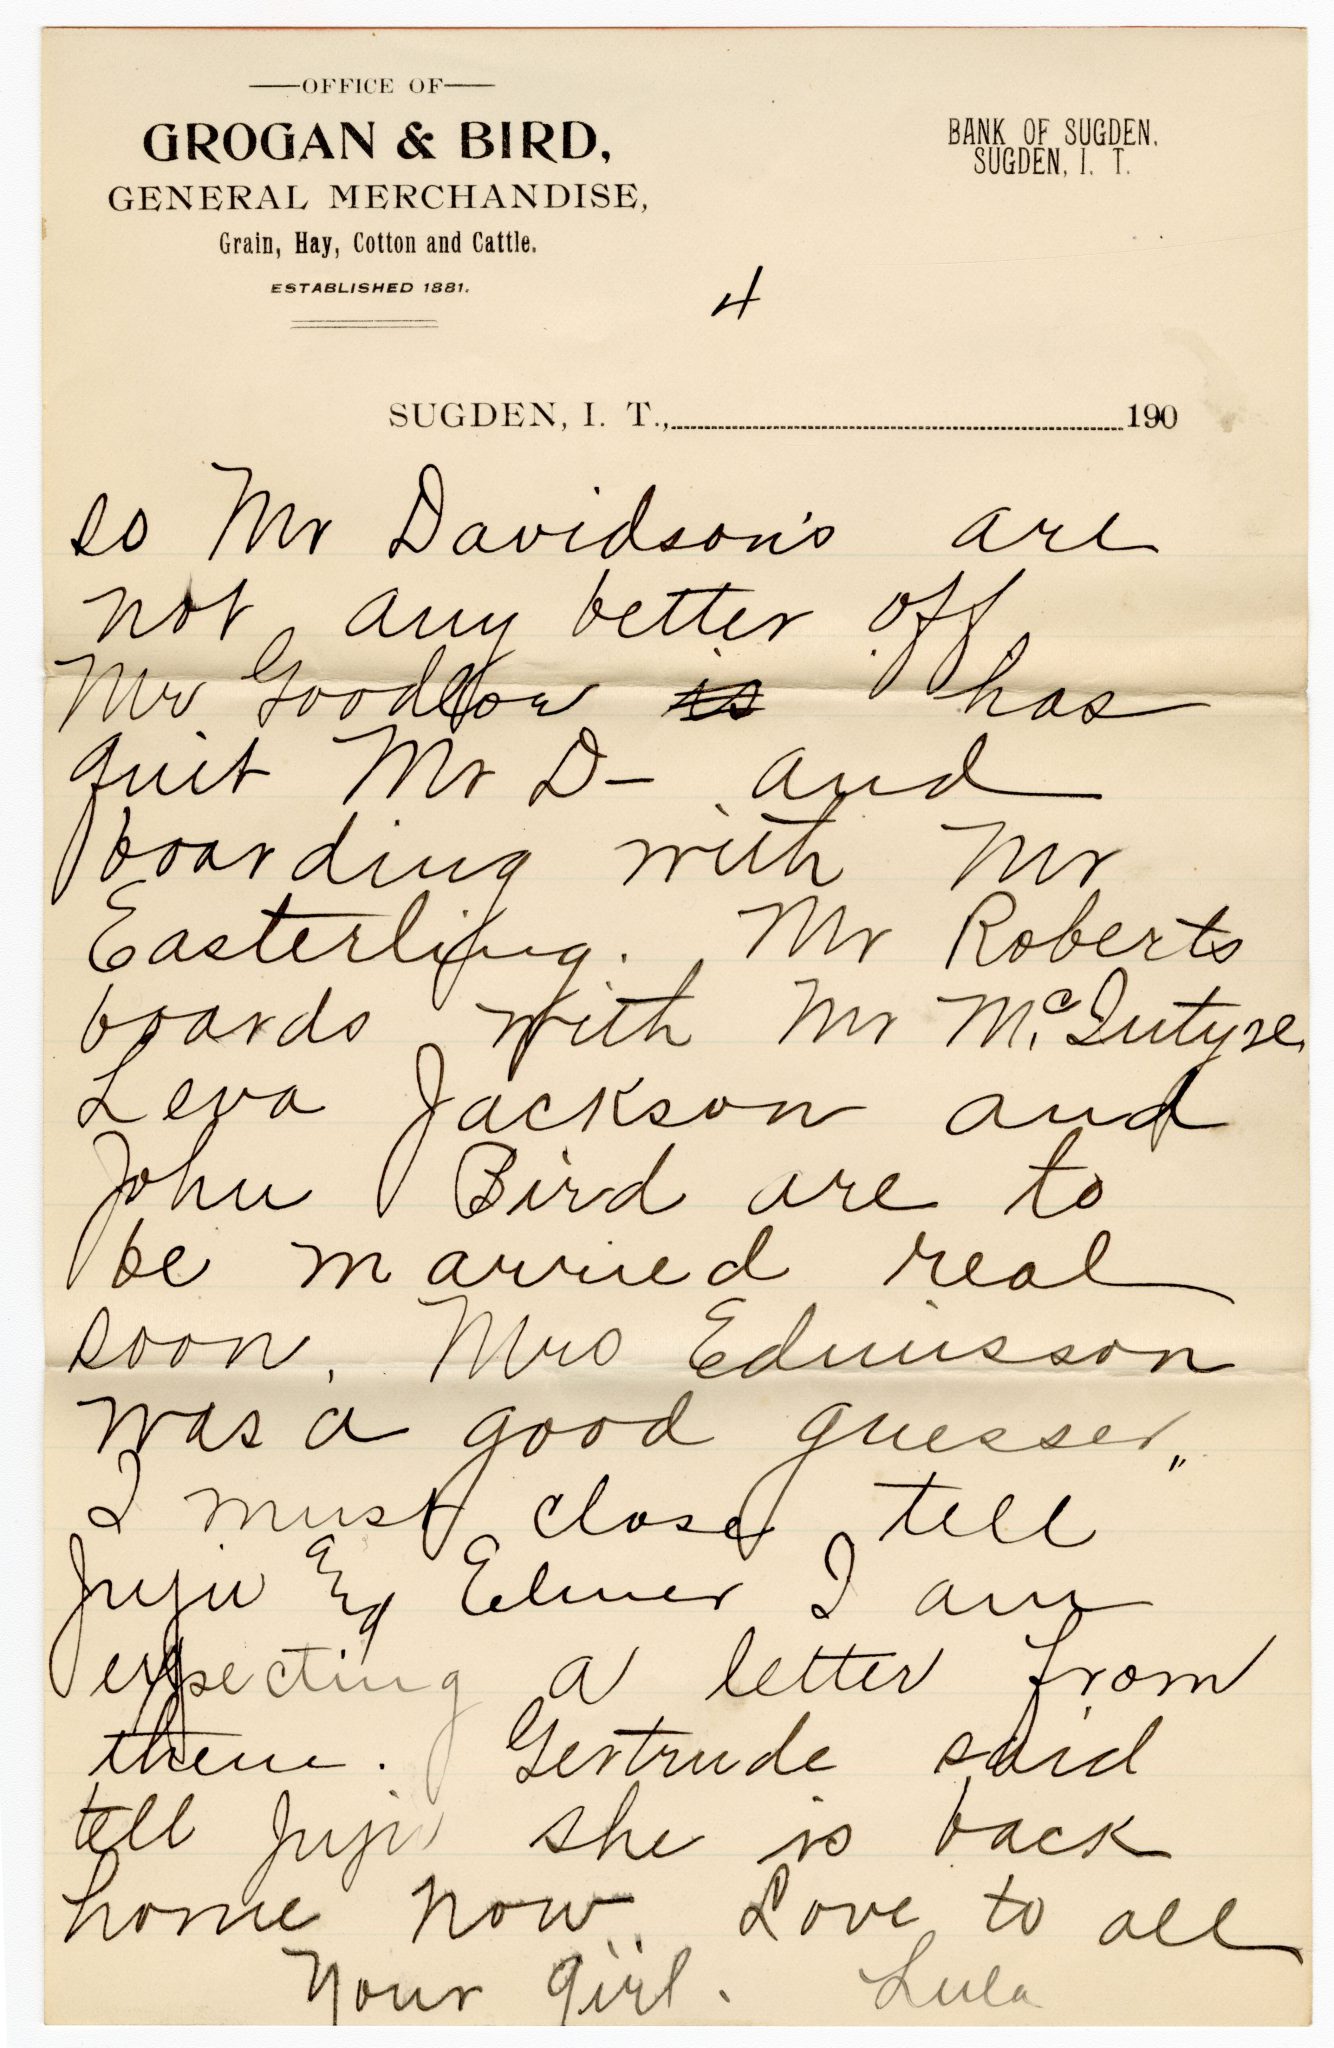 OFFICE OF
GROGAN & BIRD,
GENERAL MERCHANDISE,
Grain, Hay, Cotton and Cattle.
ESTABLISHED 1881.
BANK OF SUGDEN.
SUGDEN, I. T.
4
SUGDEN, I. T., 190
so Mr Davidson's are
not any better off
Mr Goodloe is has
quit Mr D- and
boarding with Mr
Easterling. Mr Roberts
boards with Mr McIntyre.
Leva Jackson and
John Bird are to
be married real
soon. Mrs Edmisson
was a good guesser,,
I must close tell
Juju Ed Elmer I am
expecting a letter from
them. Gertrude said
tell Juju she is back
home now. Love to all
Your girl. Lula